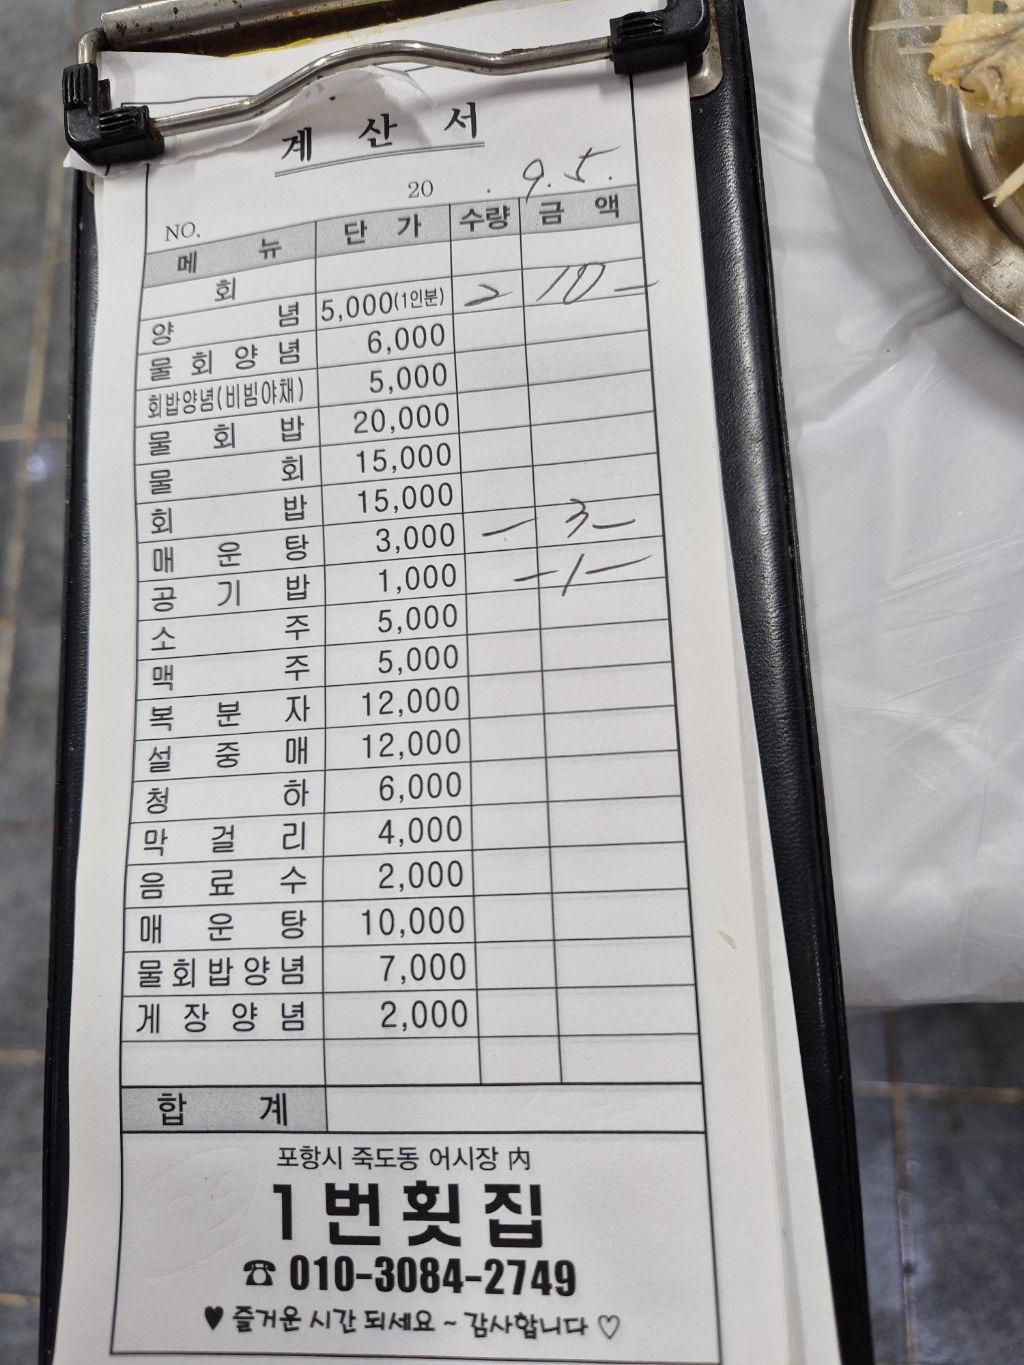 계 산 서
20 . 9. 5.
NO.
메 뉴 단 가 수량 금 액
회
양 념 5,000(1인분) 2 10 -
물 회 양 념 6,000
회밥양념(비빔야채) 5,000
물 회 밥 20,000
물 회 15,000
회 밥 15,000
매 운 탕 3,000 - 3 -
공 기 밥 1,000 - 1 -
소 주 5,000
맥 주 5,000
복 분 자 12,000
설 중 매 12,000
청 하 6,000
막 걸 리 4,000
음 료 수 2,000
매 운 탕 10,000
물회밥양념 7,000
게 장 양 념 2,000
합 계
포항시 죽도동 어시장 內
1번횟집
☎ 010-3084-2749
♥ 즐거운 시간 되세요 ~ 감사합니다 ♡